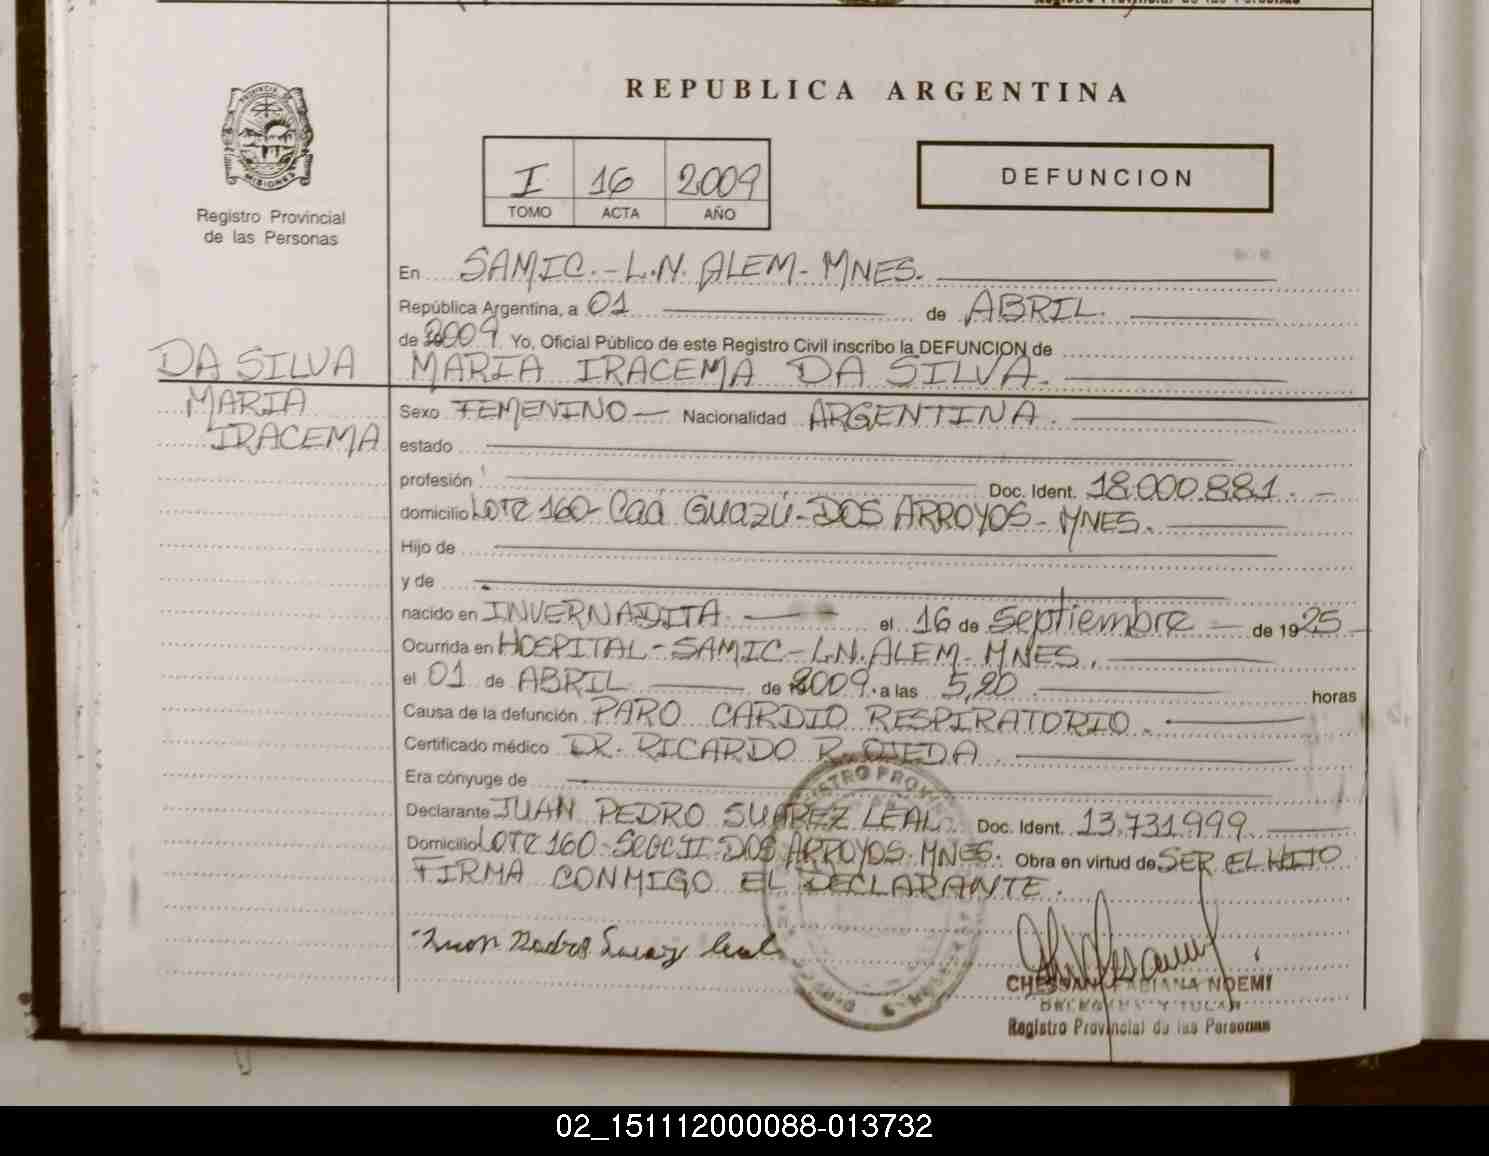 REPUBLICA ARGENTINA
PROVINCIA DE MISIONES
Registro Provincial
de las Personas
I 16 2009
TOMO ACTA AÑO
DEFUNCION
En SAMIC.-L.N. ALEM-MNES.
República Argentina, a 01 de ABRIL.
de 2009. Yo, Oficial Público de este Registro Civil inscribo la DEFUNCION de
MARIA IRACEMA DA SILVA.
DA SILVA
MARIA
IRACEMA
Sexo FEMENINO Nacionalidad ARGENTINA.
estado
profesión Doc. Ident. 18.000.881.
domicilio LOTE 160-Caá Guazú-DOS ARROYOS-MNES.
Hijo de
y de
nacido en INVERNADITA el 16 de Septiembre de 1925
Ocurrida en HOSPITAL-SAMIC-L.N.ALEM-MNES.
el 01 de ABRIL de 2009. a las 5,20 horas
Causa de la defunción PARO CARDIO RESPIRATORIO.
Certificado médico DR. RICARDO R. OJEDA
Era cónyuge de
Declarante JUAN PEDRO SUAREZ LEAL Doc. Ident. 13.731.999
Domicilio LOTE 160-Secc II DOS ARROYOS-MNES. Obra en virtud de SER EL HIJO
FIRMA CONMIGO EL DECLARANTE.
Juan Pedro Suarez Leal
FABIANA NOEMI
Registro Provincial de las Personas
02_151112000088-013732